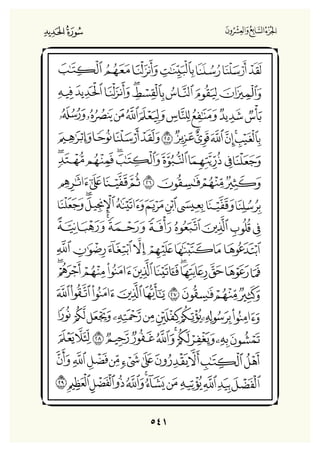 الجُزْءُ السَّابِعُ وَالعِشْرُونَ سُورَةُ الحَدِيدِ
لَقَدْ أَرْسَلْنَا رُسُلَنَا بِٱلْبَيِّنَٰتِ وَأَنزَلْنَا مَعَهُمُ ٱلْكِتَٰبَ
وَٱلْمِيزَانَ لِيَقُومَ ٱلنَّاسُ بِٱلْقِسْطِۖ وَأَنزَلْنَا ٱلْحَدِيدَ فِيهِ
بَأْسٌ شَدِيدٌ وَمَنَٰفِعُ لِلنَّاسِ وَلِيَعْلَمَ ٱللَّهُ مَن يَنصُرُهُۥ وَرُسُلَهُۥ
بِٱلْغَيْبِۚ إِنَّ ٱللَّهَ قَوِىٌّ عَزِيزٌ ٢٥ وَلَقَدْ أَرْسَلْنَا نُوحًا وَإِبْرَٰهِيمَ
وَجَعَلْنَا فِى ذُرِّيَّتِهِمَا ٱلنُّبُوَّةَ وَٱلْكِتَٰبَۖ فَمِنْهُم مُّهْتَدٍۖ
وَكَثِيرٌ مِّنْهُمْ فَٰسِقُونَ ٢٦ ثُمَّ قَفَّيْنَا عَلَىٰٓ ءَاثَٰرِهِم
بِرُسُلِنَا وَقَفَّيْنَا بِعِيسَى ٱبْنِ مَرْيَمَ وَءَاتَيْنَٰهُ ٱلْإِنجِيلَۖ وَجَعَلْنَا
فِى قُلُوبِ ٱلَّذِينَ ٱتَّبَعُوهُ رَأْفَةً وَرَحْمَةًۚ وَرَهْبَانِيَّةً
ٱبْتَدَعُوهَا مَا كَتَبْنَٰهَا عَلَيْهِمْ إِلَّا ٱبْتِغَآءَ رِضْوَٰنِ ٱللَّهِ
فَمَا رَعَوْهَا حَقَّ رِعَايَتِهَاۖ فَـَٔاتَيْنَا ٱلَّذِينَ ءَامَنُوا۟ مِنْهُمْ أَجْرَهُمْۖ
وَكَثِيرٌ مِّنْهُمْ فَٰسِقُونَ ٢٧ يَٰٓأَيُّهَا ٱلَّذِينَ ءَامَنُوا۟ ٱتَّقُوا۟ ٱللَّهَ
وَءَامِنُوا۟ بِرَسُولِهِۦ يُؤْتِكُمْ كِفْلَيْنِ مِن رَّحْمَتِهِۦ وَيَجْعَل لَّكُمْ نُورًا
تَمْشُونَ بِهِۦ وَيَغْفِرْ لَكُمْۚ وَٱللَّهُ غَفُورٌ رَّحِيمٌ ٢٨ لِّئَلَّا يَعْلَمَ
أَهْلُ ٱلْكِتَٰبِ أَلَّا يَقْدِرُونَ عَلَىٰ شَىْءٍ مِّن فَضْلِ ٱللَّهِۙ وَأَنَّ
ٱلْفَضْلَ بِيَدِ ٱللَّهِ يُؤْتِيهِ مَن يَشَآءُۚ وَٱللَّهُ ذُو ٱلْفَضْلِ ٱلْعَظِيمِ ٢٩
٥٤١